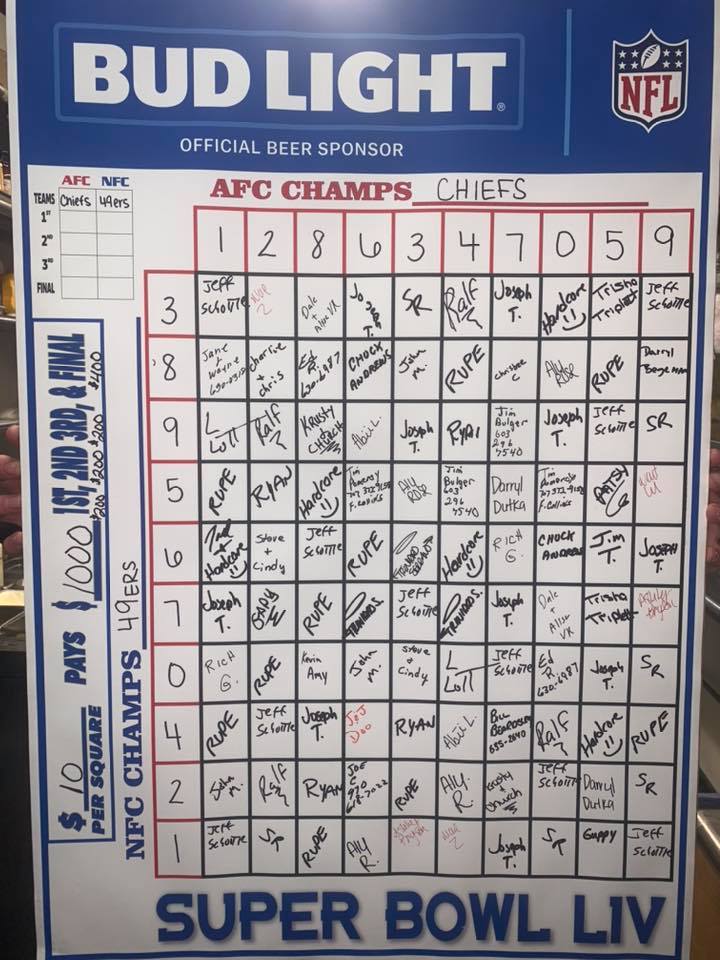 BUD LIGHT®
NFL
OFFICIAL BEER SPONSOR
AFC NFC
TEAMS Chiefs 49ers
1ST
2ND
3RD
FINAL
AFC CHAMPS CHIEFS
1 2 8 6 3 4 7 0 5 9
$ 10 PER SQUARE PAYS $ 1000 1ST, 2ND 3RD, & FINAL
$200 $200 $200 $400
NFC CHAMPS 49ERS
3 Jeff Schottle Dale + Alise VK Joseph T. SR Ralf Joseph T. Hardcore Trisha Triplett Jeff Schottle
8 Jane + Wayne Charlie + Chris Ed R. 630-6987 CHUCK ANDREWS John M. RUPE Chrisbee C Aly Rose RUPE Darryl
9 L Lott Ralf KRUSTY CHURCH Abii L. Joseph T. RYAN Jim Bulger 603 296 7540 Joseph T. Jeff Schottle SR
5 RUPE RYAN Hardcore Tim Pomeroy F. Collins Aly Rose Jim Bulger 603 296 7540 Darryl Dutka Tim Pomeroy F. Collins PATSY
6 Hardcore Steve + Cindy Jeff Schottle RUPE Hardcore RICH G. CHUCK ANDREWS Jim T. JOSEPH T.
7 Joseph T. GARY RUPE Jeff Schottle Joseph T. Dale + Alise VK Trisha Triplett
0 RICH G. RUPE Kevin Amy John M. Steve + Cindy L Lott Jeff Schottle Ed R. 630-6987 Joseph T. SR
4 RUPE Jeff Schottle Joseph T. Doo RYAN Abii L. Bill BEARDSLEY 655-2640 Ralf Hardcore RUPE
2 John M. Ralf RYAN JOE C 970 618-7022 RUPE Aly R. Krusty Church Jeff Schottle Darryl Dutka SR
1 Jeff Schottle ST RUPE Aly R. Joseph T. ST GUPPY Jeff Schottle
SUPER BOWL LIV